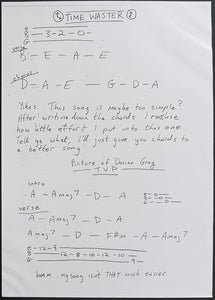 TIME WASTER
B — 3 - 2 - 0 —
G
verse
D — E — A — E
chorus
D — A — E — G - D - A
Yikes. This song is maybe too simple?
After writing down the chords I realise
how little effort I put into this one
Tell ya what, I'll just give you chords to
a better song
Picture of Dorian Gray
TVP
intro
A - Amaj7 — D - A
verse
A — Amaj7 — D — A
Amaj7 — D — F#m — A — Amaj7
E — 12 - 9
B — 12 - 8 - 10 - 12 - 10
G — 9 -
hmm. my song isn't THAT much easier.